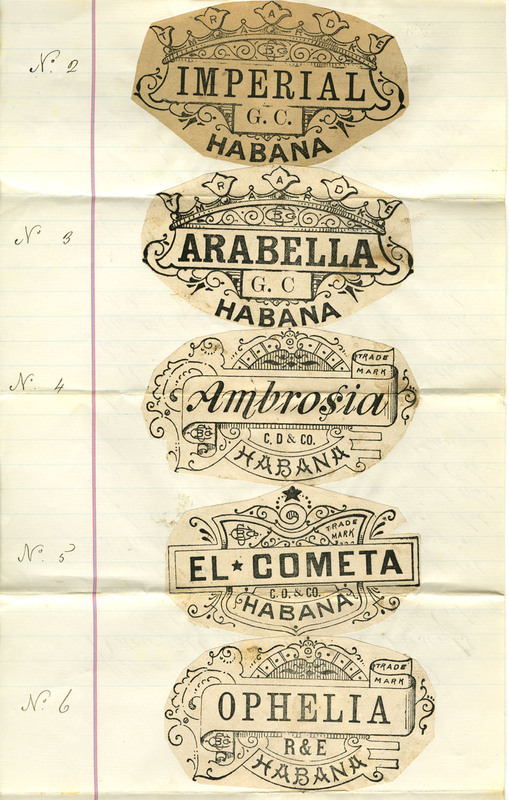 Nº 2
TRADE
MARK
CBC
IMPERIAL
G. C.
HABANA
Nº 3
TRADE
MARK
CBC
ARABELLA
G. C
HABANA
Nº 4
TRADE
MARK
Ambrosia
C, D & CO.
HABANA
Nº 5
TRADE
MARK
EL ★ COMETA
C. D. & CO.
HABANA
Nº 6
TRADE
MARK
OPHELIA
R & E
HABANA